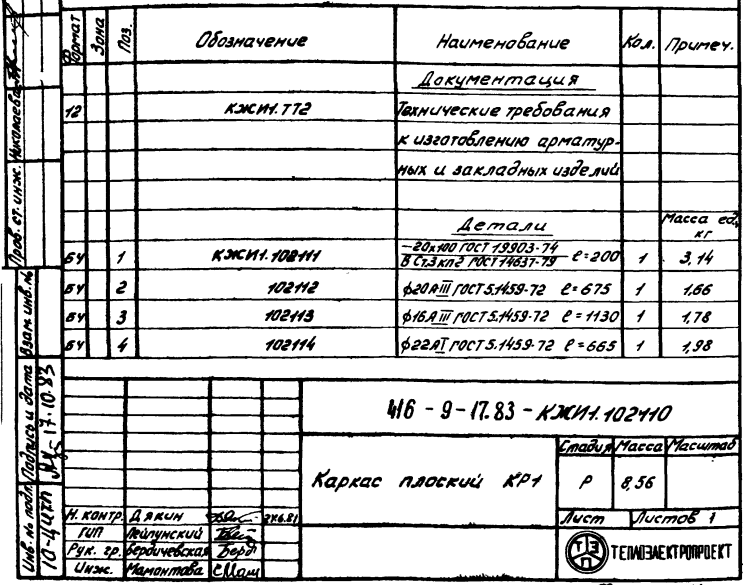 Формат Зона Поз. Обозначение Наименование Кол. Примеч.
Документация
12 КЖИ1.ТТ2 Технические требования
к изготовлению арматур-
ных и закладных изделий
Детали Масса ед., кг
БЧ 1 КЖИ1.102111 -20х100 ГОСТ 19903-74 / В Ст.3 кп2 ГОСТ 14637-79 ℓ=200 1 3,14
БЧ 2 102112 ф20АIII ГОСТ 5.1459-72 ℓ=675 1 1,66
БЧ 3 102113 ф16АIII ГОСТ 5.1459-72 ℓ=1130 1 1,78
БЧ 4 102114 ф22АI ГОСТ 5.1459-72 ℓ=665 1 1,98
416-9-17.83-КЖИ1.102110
Каркас плоский КР1
Стадия Масса Масштаб
Р 8,56
Лист Листов 1
ТЭП ТЕПЛОЭЛЕКТРОПРОЕКТ
Н. контр. Дякин
ГИП Рейпунский
Рук. гр. Бердичевская
Инж. Мамонтова
Пров. ст. инж. Николаева
Взам. инв. №
Подпись и дата 17.10.83
Инв. № подл.